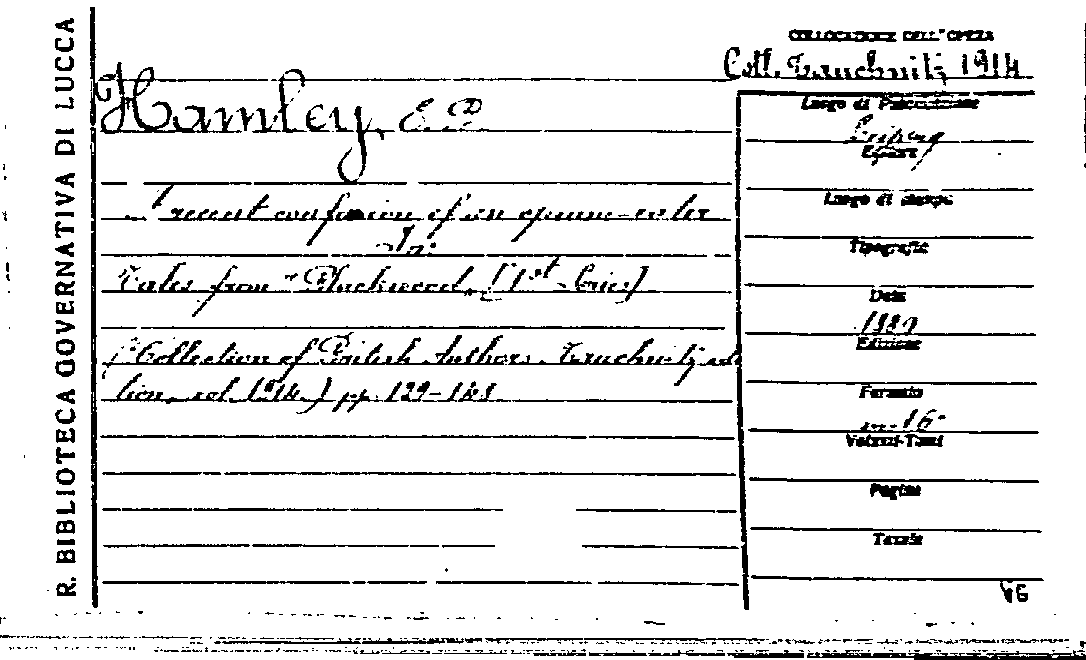 R. BIBLIOTECA GOVERNATIVA DI LUCCA
COLLOCAZIONE DELL'OPERA
Coll. Tauchnitz 1914
Hamley, E. B.
A recent confession of an opium-eater
In:
Tales from "Blackwood. (1st Series)
("Collection of British Authors. Tauchnitz edi
tion, vol. 1914.) pp. 129-148
Luogo di Pubblicazione
Leipzig
Editore
Luogo di stampa
Tipografia
Data
1880
Edizione
Formato
in-16°
Volumi-Tomi
Pagine
Tavole